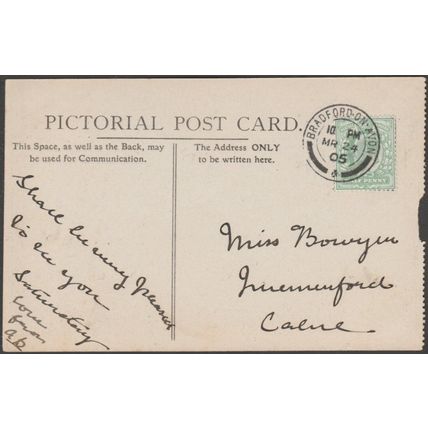 PICTORIAL POST CARD.
This Space, as well as the Back, may
be used for Communication.
The Address ONLY
to be written here.
BRADFORD-ON-AVON
10 PM
MR 24
05
HALFPENNY
Shall be very pleased
to see you
Saturday
love
from
Miss Bowyer
Calne